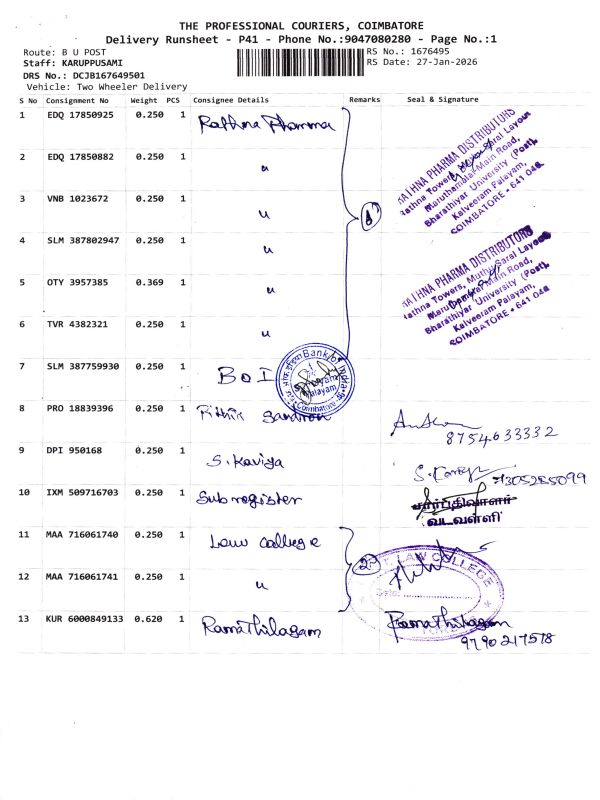 THE PROFESSIONAL COURIERS, COIMBATORE
Delivery Runsheet - P41 - Phone No.:9047080280 - Page No.:1
Route: B U POST
RS No.: 1676495
Staff: KARUPPUSAMI
RS Date: 27-Jan-2026
DRS No.: DCJB167649501
Vehicle: Two Wheeler Delivery
S No Consignment No Weight PCS Consignee Details Remarks Seal & Signature
1 EDQ 17850925 0.250 1 Rathna Pharma
2 EDQ 17850882 0.250 1 "
3 VNB 1023672 0.250 1 "
4 SLM 387802947 0.250 1 "
5 OTY 3957385 0.369 1 "
6 TVR 4382321 0.250 1 "
RATHNA PHARMA DISTRIBUTORS
Rathna Towers, Muthu Saral Layout
Maruthamalai Main Road,
Bharathiyar University (Post),
Kalveeram Palayam,
COIMBATORE - 641 046
RATHNA PHARMA DISTRIBUTORS
Rathna Towers, Muthu Saral Layout
Maruthamalai Main Road,
Bharathiyar University (Post),
Kalveeram Palayam,
COIMBATORE - 641 046
7 SLM 387759930 0.250 1 BOI
Bank of India
Coimbatore
8 PRO 18839396 0.250 1
8754633332
9 DPI 950168 0.250 1 S. Kaviya
10 IXM 509716703 0.250 1 Sub register
சார்பதிவாளர்
வடவள்ளி
11 MAA 716061740 0.250 1 Law college
12 MAA 716061741 0.250 1 "
LAW COLLEGE
13 KUR 6000849133 0.620 1 Ramathilagam
Ramathilagam
9790217578